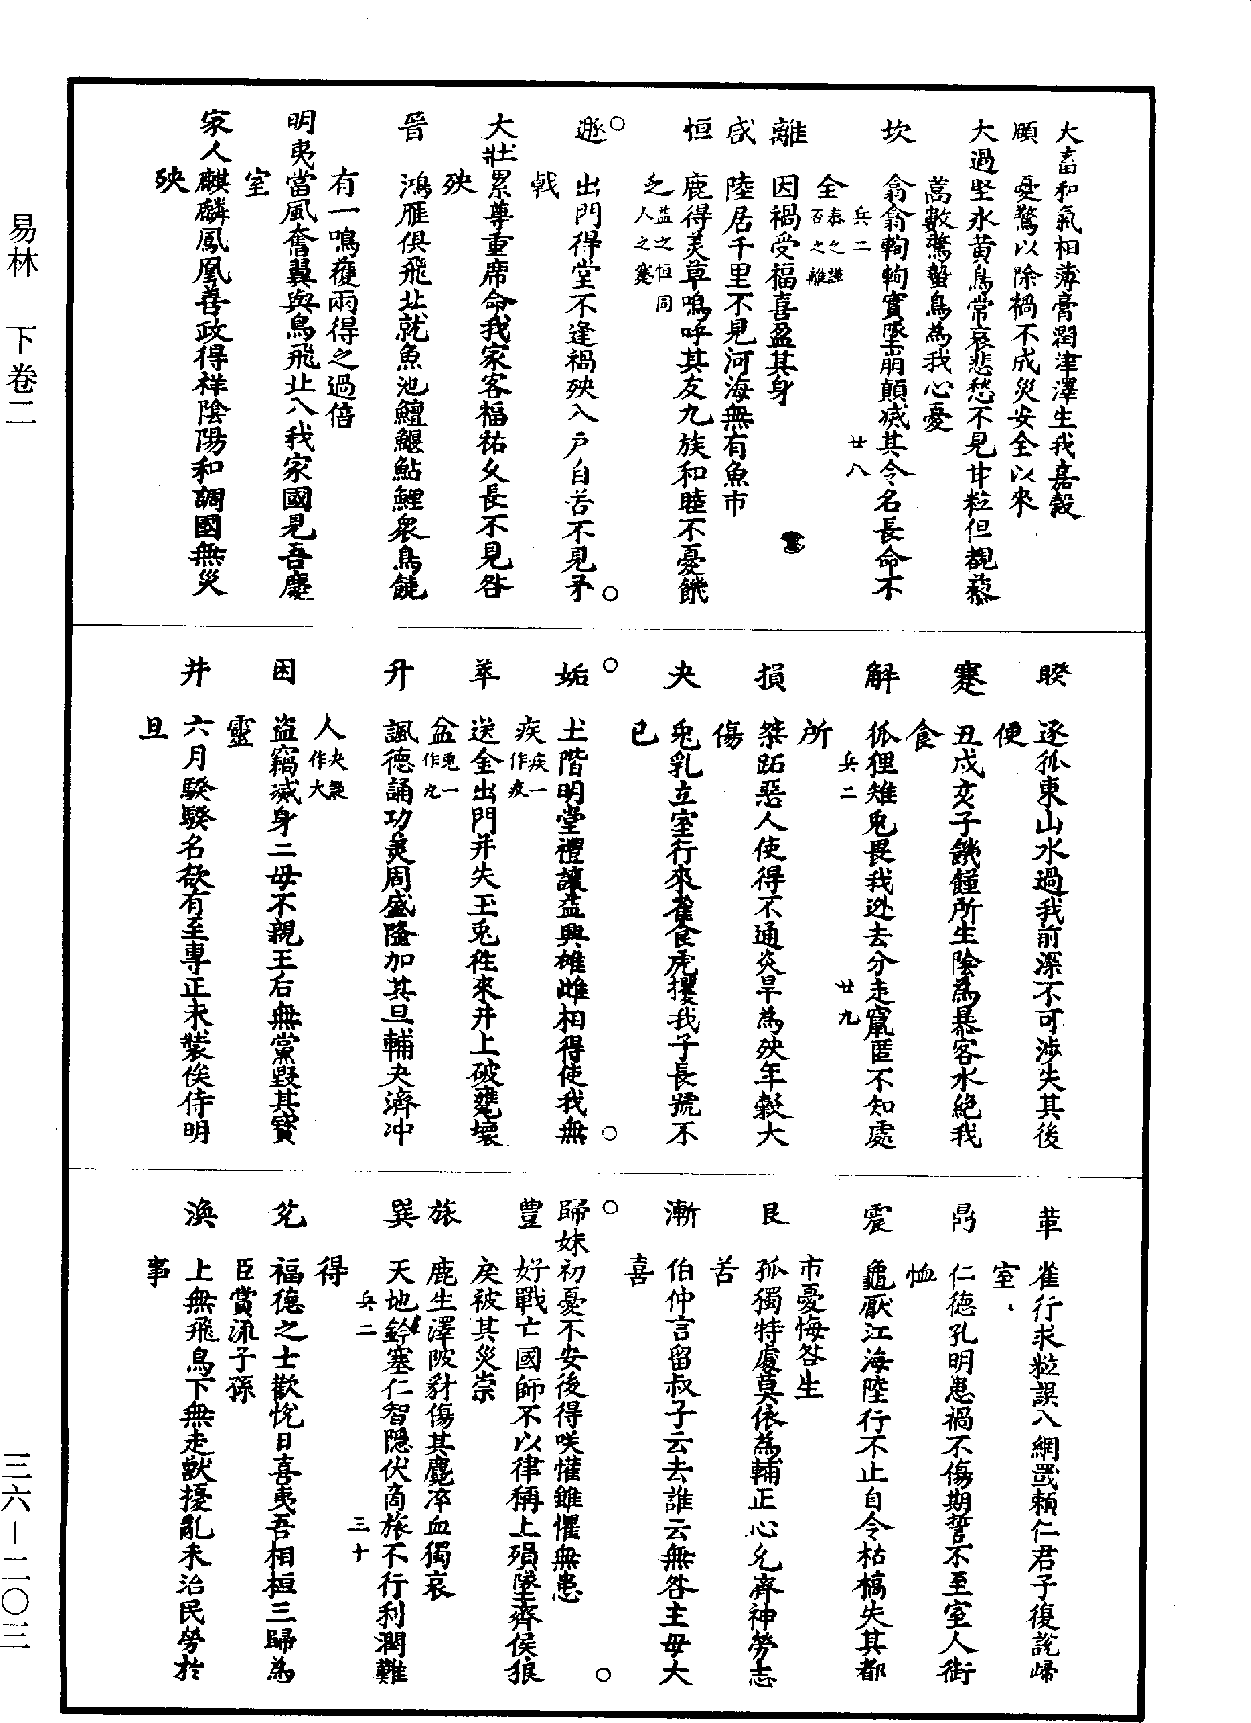 大畜和氣相薄膏潤津澤生我嘉穀
頤　憂驚以除禍不成災安全以來
大過坚氷黄鳥常哀悲愁不見甘粒但觀藜
蒿數驚鷙鳥為我心憂
坎　翕翕輷輷實墜崩顛滅其令名長命不
兵二　廿八
全泰之謙
否之離
離　因禍受福喜盈其身
咸　陸居千里不見河海無有魚市
恒　鹿得美草鳴呼其友九族和睦不憂饑
乏益之恒同
人之蹇
遯　出門得堂不逢禍殃入户自苦不見矛
戟
大壯累尊重席命我家客福祐久長不見咎
殃
晉　鴻雁俱飛北就魚池鱣鰋鮎鯉衆鳥饒
有一鳴獲兩得之過倍
明夷當風奮翼與鳥飛北入我家國見吾慶
室
家人麒麟鳳凰善政得祥陰陽和調國無災
殃
睽　逐狐東山水過我前深不可涉失其後
便
蹇　丑戌亥子饑饉所生陰為暴客水絶我
食
解　狐狸雉兎畏我逃去分走竄匿不知處
兵二　廿九
所
損　桀跖惡人使得不通炎旱為殃年穀大
傷
夬　兎乳立室行來雀食虎攫我子長號不
已
姤　土階明堂禮讓益興雄雌相得使我無
疾疾一
作疚
萃　送金出門并失玉兎徃來井上破甕壊
盆兎一
作九
升　諷德誦功美周盛隆加其旦輔夬濟冲
人夬疑
作大
困　盗竊滅身二母不親王后無黨毀其寳
靈
井　六月騤騤名欲有至專正未裝俟待明
旦
革　雀行求粒誤入網罭賴仁君子復說歸
室
鼎　仁德孔明患禍不傷期誓不至室人銜
恤
震　龜厭江海陸行不止自令枯槁失其都
市憂悔咎生
艮　孤獨特處莫依為輔正心允齊神勞志
苦
漸　伯仲言留叔子云去誰云無咎主母大
喜
歸妹初憂不安後得咲懽雖懼無患
豐　好戰亡國師不以律稱上殞墜齊侯狼
戾被其災祟
旅　鹿生澤陂豺傷其麑卒血獨哀
巽　天地鈐塞仁智隠伏商旅不行利潤難
兵二　三十
得
兌　福德之士歡悅日喜夷吾相桓三歸為
臣賞流子孫
渙　上無飛鳥下無走獸擾亂未治民勞於
事
易林　下卷二
三六—二〇三